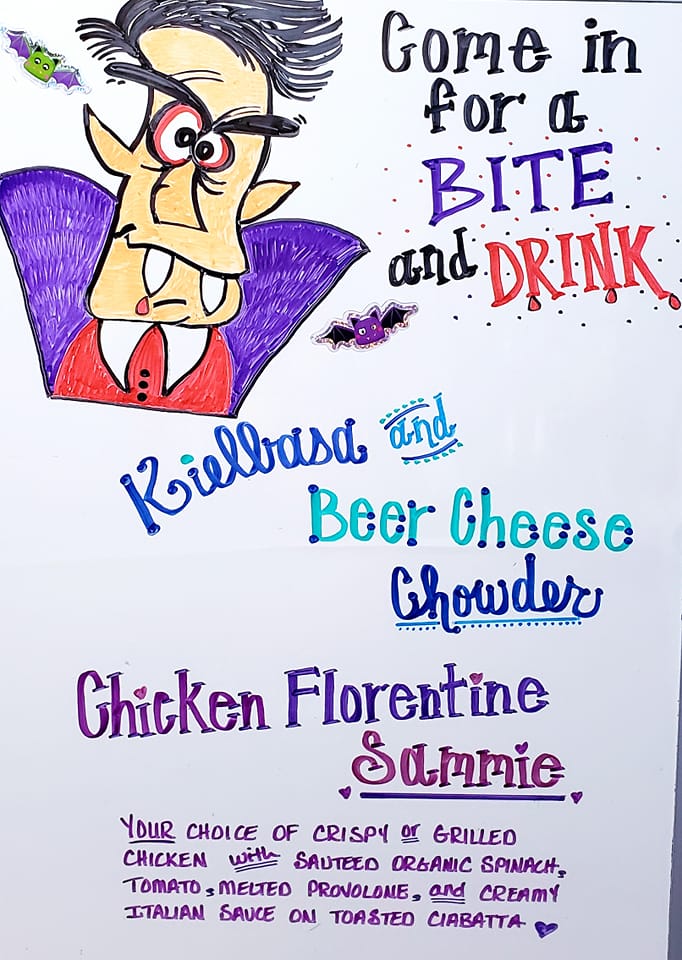 Come in
for a
BITE
and DRINK
Kielbasa and
Beer Cheese
Chowder
Chicken Florentine
Sammie
YOUR CHOICE OF CRISPY or GRILLED
CHICKEN with SAUTEED ORGANIC SPINACH,
TOMATO, MELTED PROVOLONE, and CREAMY
ITALIAN SAUCE ON TOASTED CIABATTA